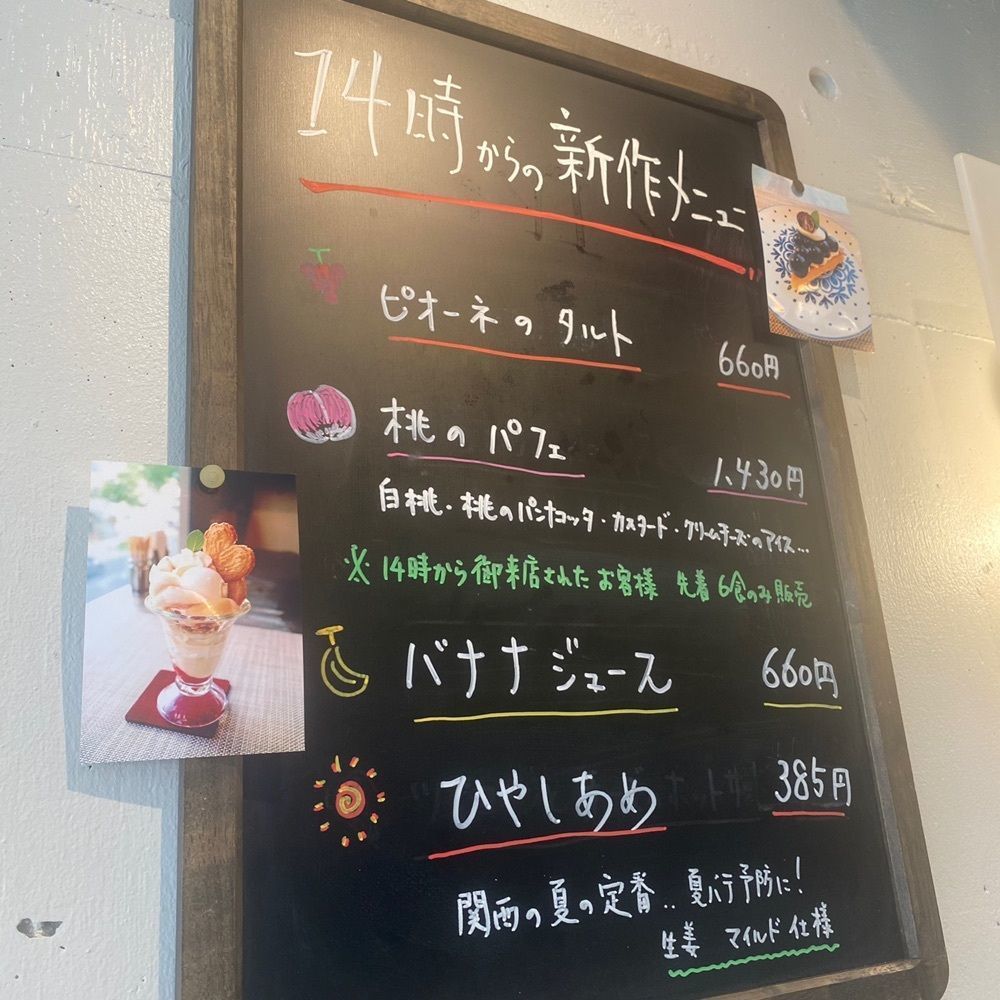 14時からの新作メニュー
ピオーネのタルト 660円
桃のパフェ 1,430円
白桃・桃のパンナコッタ・カスタード・クリームチーズのアイス...
※14時から御来店されたお客様 先着6食のみ販売
バナナジュース 660円
ひやしあめ 385円
関西の夏の定番..夏バテ予防に!
生姜 マイルド仕様